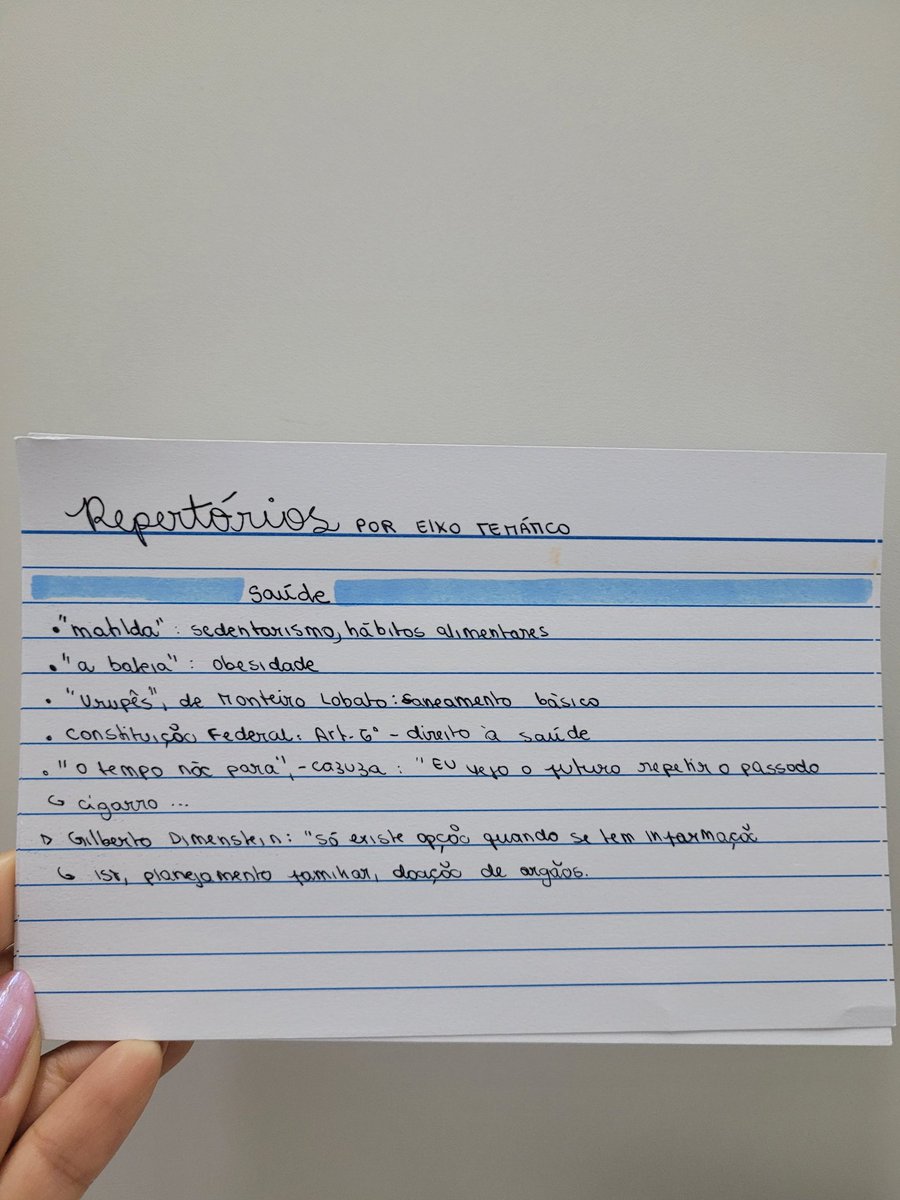 Repertórios POR EIXO TEMÁTICO
saúde
• "matilda": sedentarismo, hábitos alimentares
• "a baleia": obesidade
• "Urupês", de Monteiro Lobato: saneamento básico
• Constituição Federal: Art. 6° - direito à saúde
• "o tempo não para", - cazuza: "EU vejo o futuro repetir o passado
↳ cigarro ...
▷ Gilberto Dimenstein: "só existe opção quando se tem informação
↳ IST, planejamento familiar, doação de orgãos.